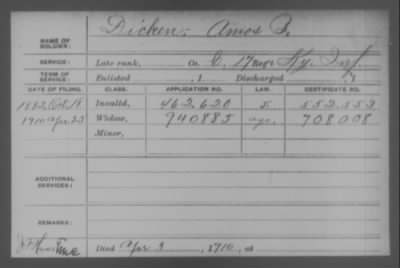 NAME OF SOLDIER: Dicken, Amos B.
SERVICE: Late rank, Co. C, 17 Reg't Ky. Inf.
TERM OF SERVICE: Enlisted , 1 Discharged , 1
DATE OF FILING. CLASS. APPLICATION NO. LAW. CERTIFICATE NO.
1882, Oct. 18 Invalid, 462,620 552,553
1910 Apr 25 Widow, 940885 708008
Minor,
ADDITIONAL SERVICES:
REMARKS:
Died Apr 3, 1910, at